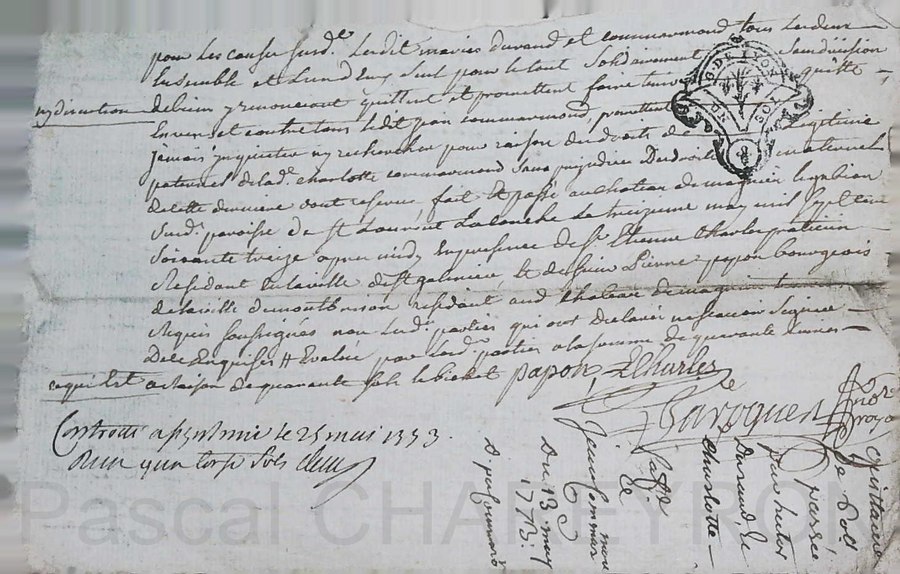 pour les causes susd.es lesdit mariés durand et commarmond tous les deux
Ensemble et l'un d'eux seul pour le tout solidairement sans division
ny discution
debien y renoncant quittent et promettent faire tenir quitte
Envers et contre tous ledit jean commarmond, promettent
jamais inquieter ny rechercher pour raison des droits de legitime
paternels de lad.e charlotte commarmond sans prejudice des droits maternels
de cette derniere dont reserve fait Et passé au chateau de magnieu
Susd. paroisse de St Laurent La Conche Le treizieme may mil sept cent
soixante treize apres midy En presence de Sr Etienne Charles praticien
Residant en la ville de St galmier & de sieur Pierre papon bourgeois
de la ville de montbrison residant aud. Chateau de magnieu
Requis soussignés non lesd. parties qui ont declaré ne scavoir signer
de ce Enquises Evalué par lesd. parties a la somme de quarante livres
a raison de quarante sols le bichet papon ECharles
G. DE LYON
DEUX SOLS
Baroquet
nore royal
Controllé a le 25 mai 1773.
Reçu
Du 13 may
1773.
quittance
de
passée
par huber
Durand, de
Charlotte
Jean Commarmond
Pascal CHAREYRON